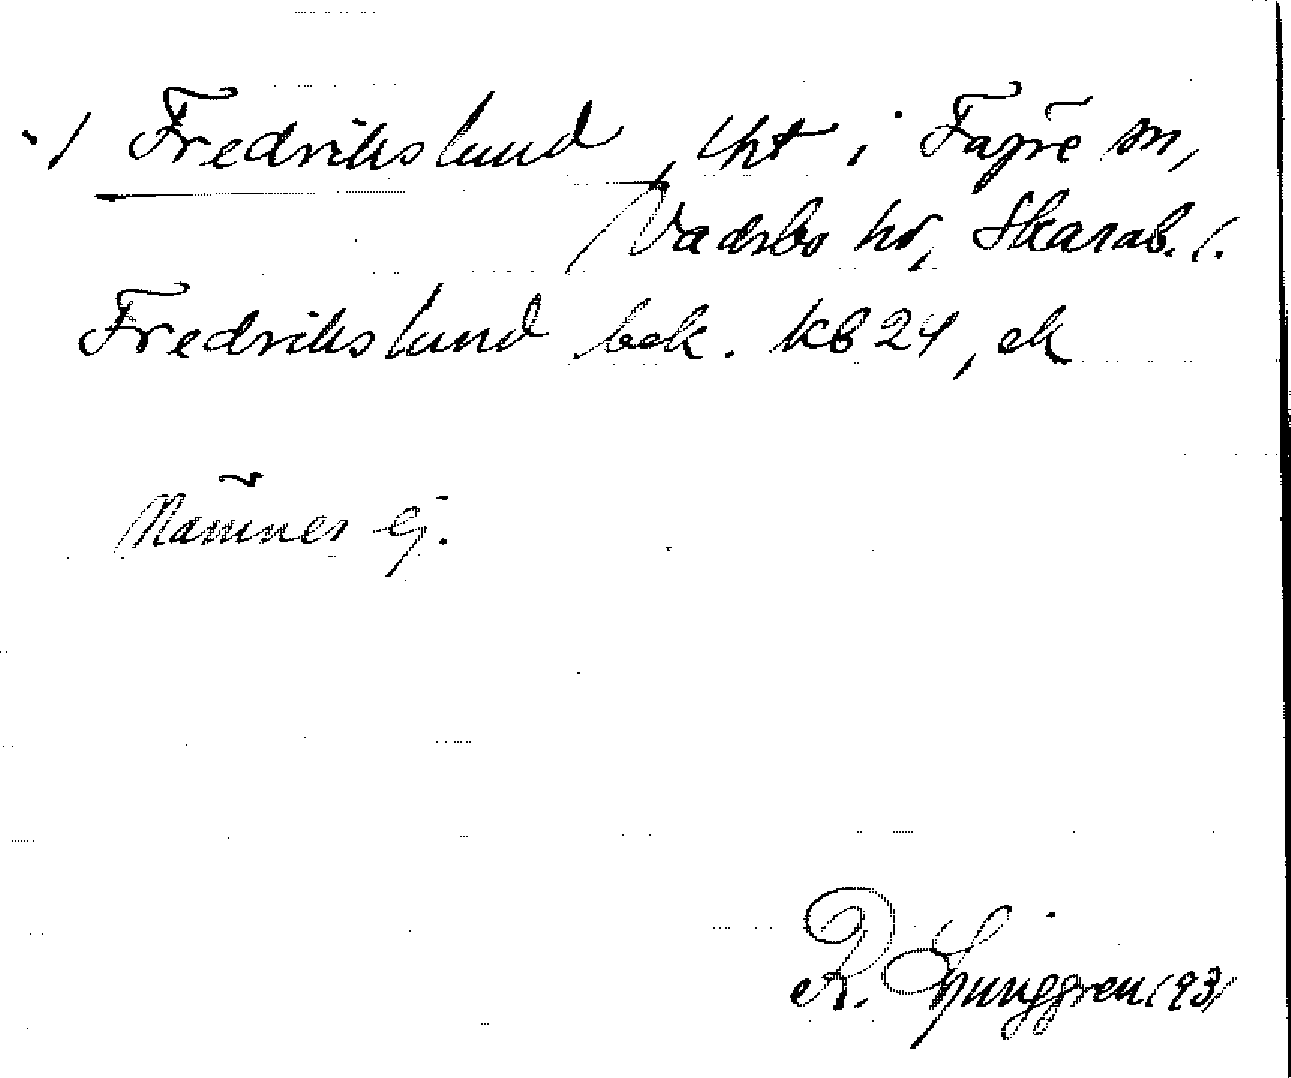 ·/ Fredrikslund, tht i Fägre sn,
Vadsbo hd, Skarab. l.
Fredrikslund bek. KB 24, ek
Nämnes ej.
R. Ljunggren 1931